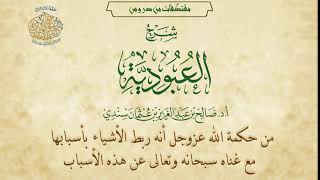 مقتطفات من دروس
شرح
العبودية
أ.د. صالح بن عبدالعزيز بن عثمان سندي
من حكمة الله عزوجل أنه ربط الأشياء بأسبابها
مع غناه سبحانه وتعالى عن هذه الأسباب